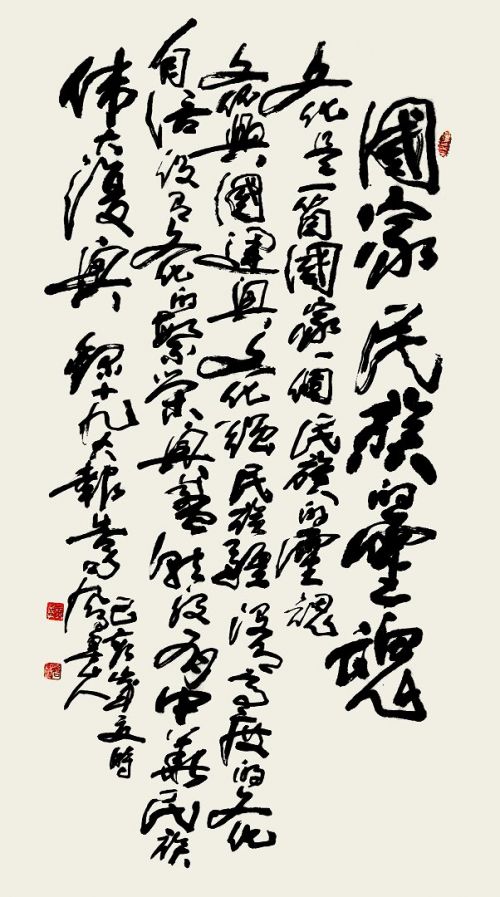 國家民族的靈魂
文化是一箇國家一個民族的靈魂
文化興國運興，文化強民族強沒有高度的文化
自信沒有文化的繁榮興盛就沒有中華民族
伟大復興，錄十九大報告句
己亥歲夏時